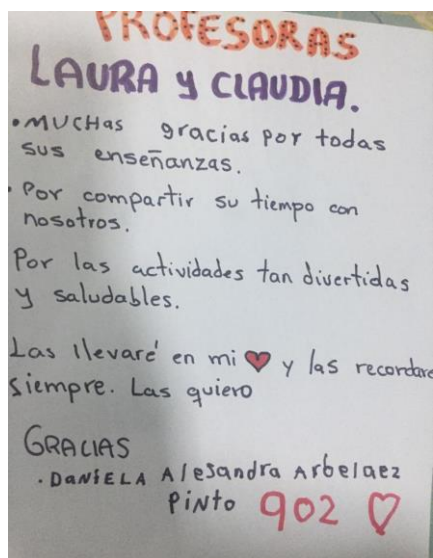 PROFESORAS
LAURA y CLAUDIA.
• MUCHas gracias por todas
sus enseñanzas.
• Por compartir su tiempo con
nosotros.
Por las actividades tan divertidas
y saludables.
Las llevaré en mi ❤ y las recordare
siempre. Las quiero
GRACIAS
. DANiELA Alesandra Arbelaez
PiNto 902 ♡